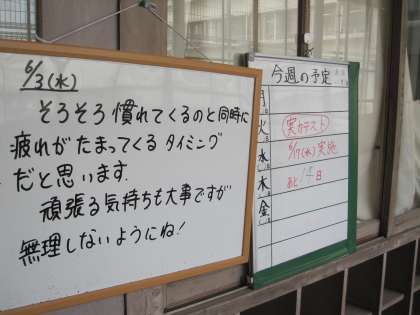 6/3(水)
そろそろ慣れてくるのと同時に
疲れがたまってくるタイミング
だと思います.
頑張る気持ちも大事ですが
無理しないようにね!
今週の予定
月
火
(実力テスト)
水
6/17(水)実施
木
あと14日
金